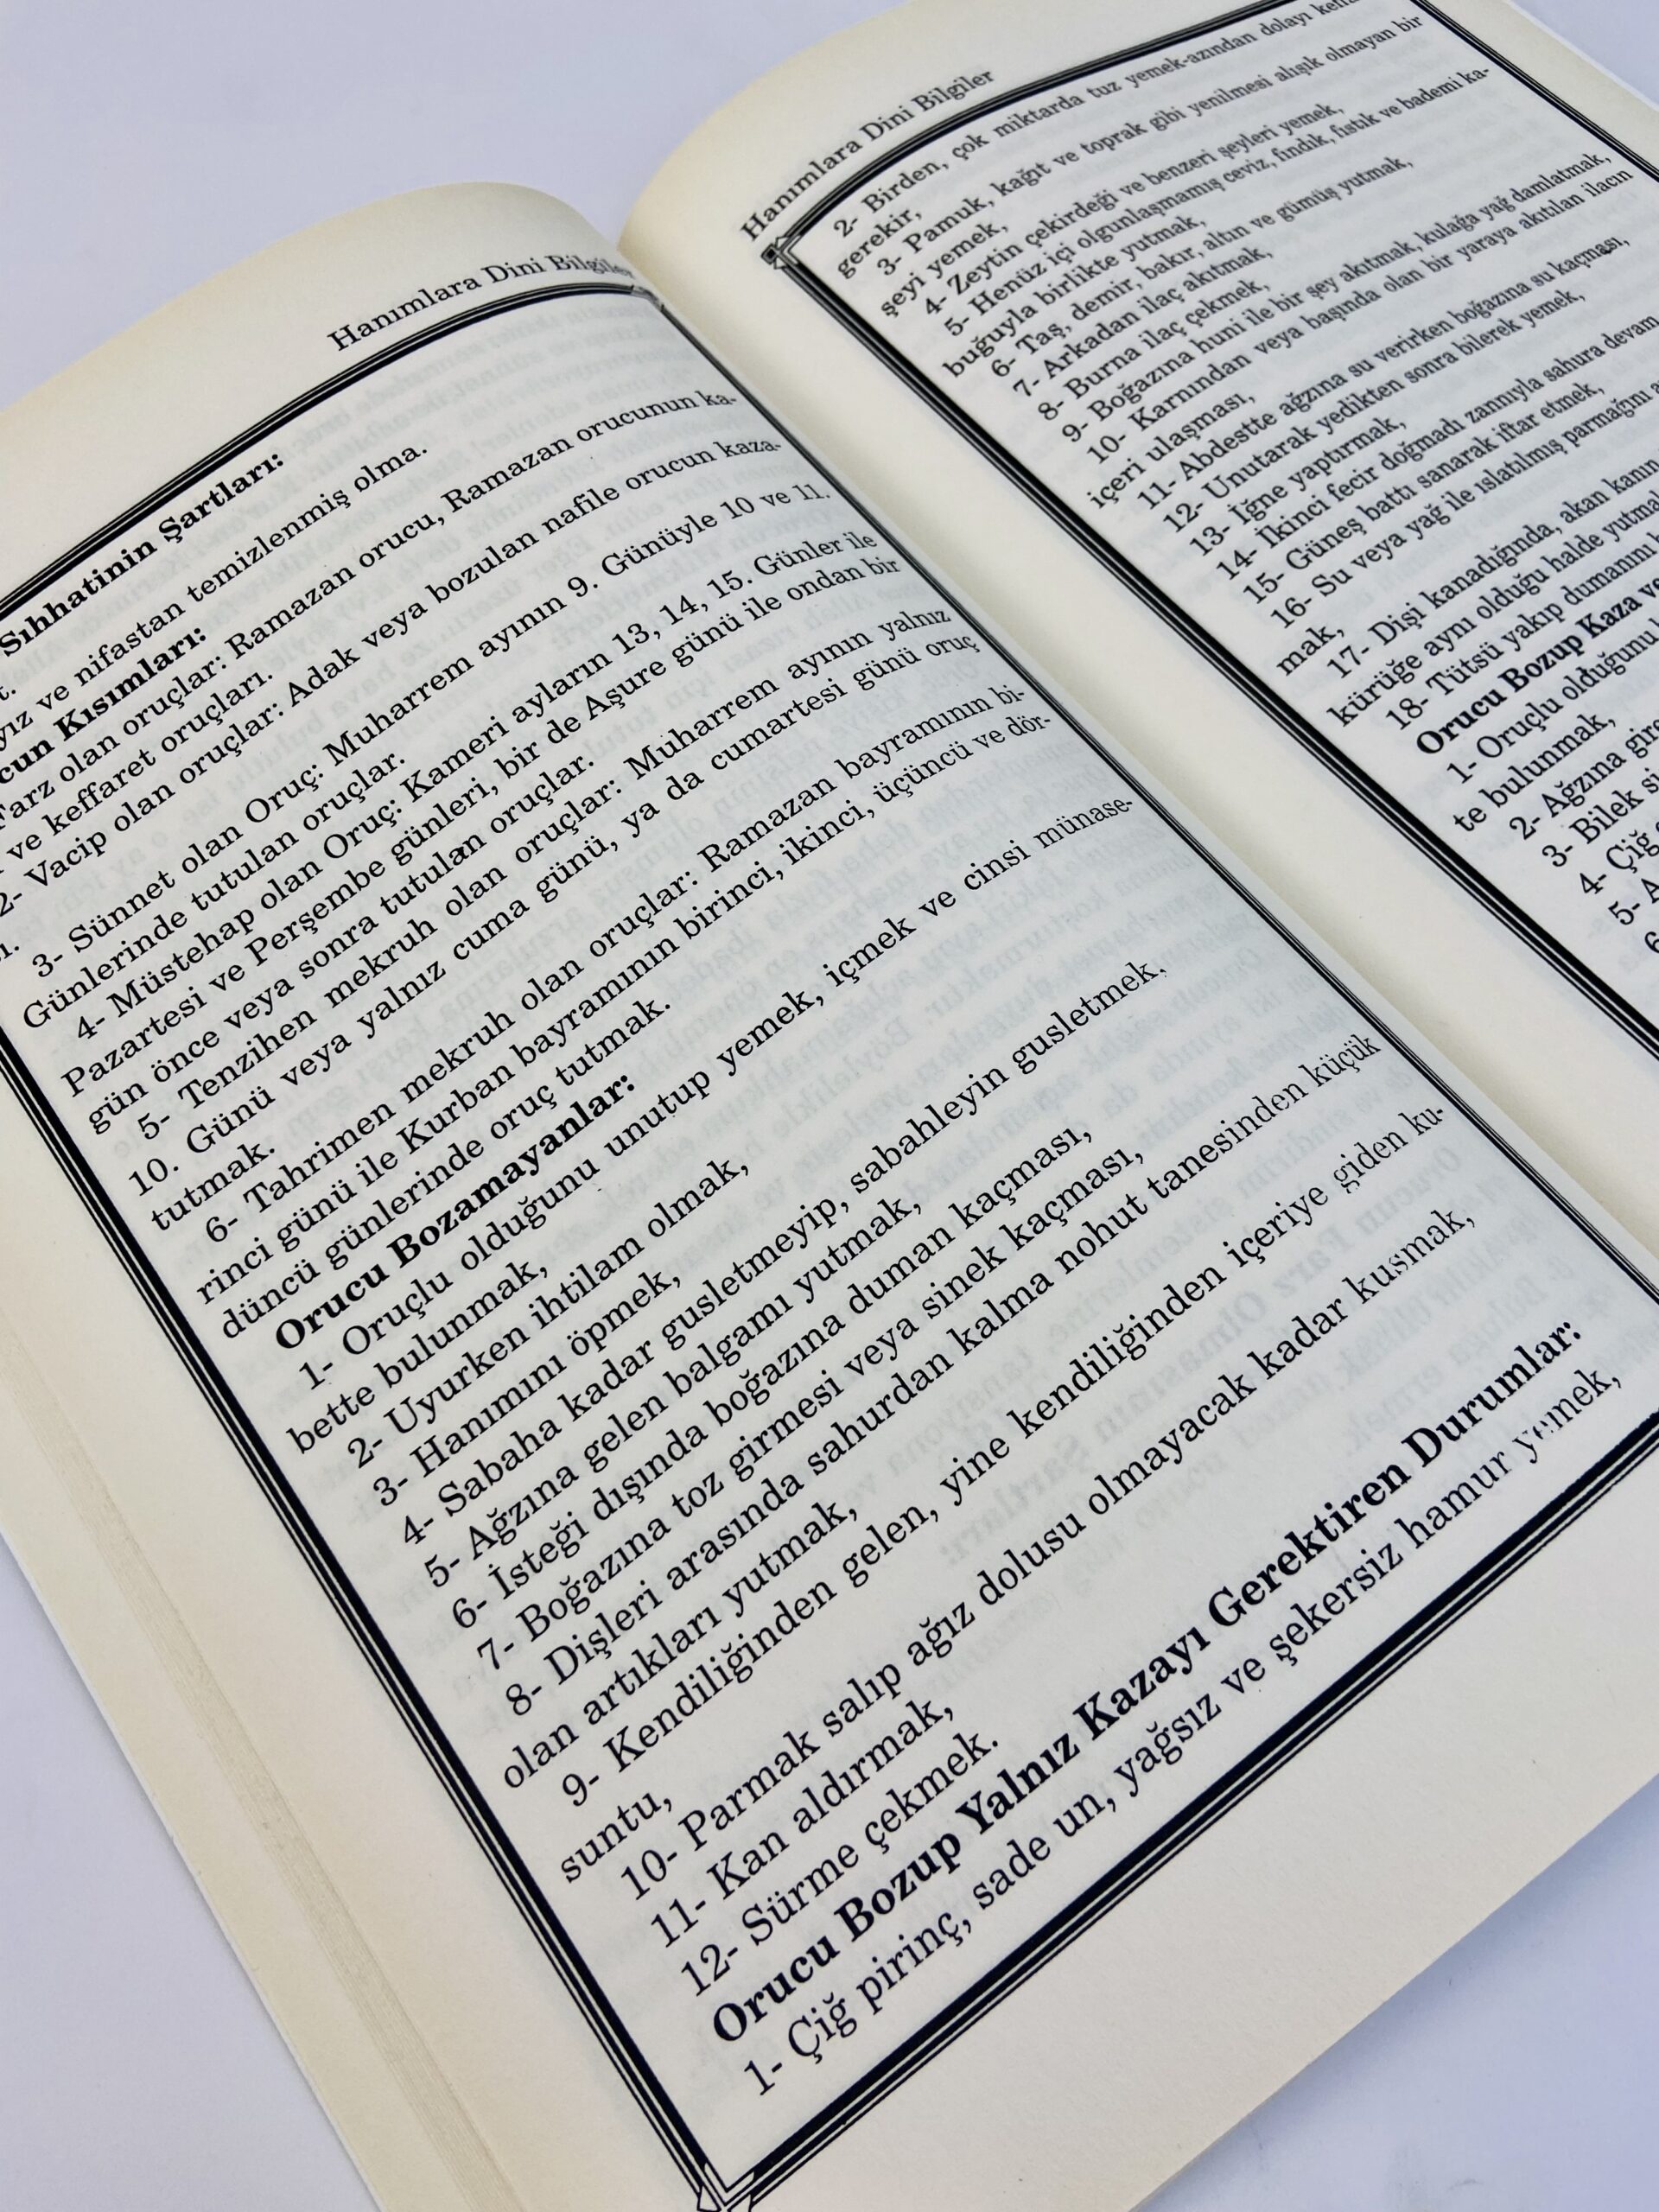 Hanımlara Dini Bilgiler
Sıhhatinin Şartları:
ve nifastan temizlenmiş olma.
Kısımları:
Farz olan oruçlar: Ramazan orucu, Ramazan orucunun ka-
ve keffaret oruçları.
2- Vacip olan oruçlar: Adak veya bozulan nafile orucun kaza-
3- Sünnet olan Oruç: Muharrem ayının 9. Günüyle 10 ve 11.
Günlerinde tutulan oruçlar.
4- Müstehap olan Oruç: Kameri ayların 13, 14, 15. Günler ile
Pazartesi ve Perşembe günleri, bir de Aşure günü ile ondan bir
gün önce veya sonra tutulan oruçlar.
5- Tenzihen mekruh olan oruçlar: Muharrem ayının yalnız
10. Günü veya yalnız cuma günü, ya da cumartesi günü oruç
tutmak.
6- Tahrimen mekruh olan oruçlar: Ramazan bayramının bi-
rinci günü ile Kurban bayramının birinci, ikinci, üçüncü ve dör-
düncü günlerinde oruç tutmak.
Orucu Bozamayanlar:
1- Oruçlu olduğunu unutup yemek, içmek ve cinsi münase-
bette bulunmak,
2- Uyurken ihtilam olmak,
3- Hanımını öpmek,
4- Sabaha kadar gusletmeyip, sabahleyin gusletmek,
5- Ağzına gelen balgamı yutmak,
6- İsteği dışında boğazına duman kaçması,
7- Boğazına toz girmesi veya sinek kaçması,
8- Dişleri arasında sahurdan kalma nohut tanesinden küçük
olan artıkları yutmak,
9- Kendiliğinden gelen, yine kendiliğinden içeriye giden ku-
suntu,
10- Parmak salıp ağız dolusu olmayacak kadar kusmak,
11- Kan aldırmak,
12- Sürme çekmek.
Orucu Bozup Yalnız Kazayı Gerektiren Durumlar:
1- Çiğ pirinç, sade un, yağsız ve şekersiz hamur yemek,
Hanımlara Dini Bilgiler
2- Birden, çok miktarda tuz yemek-azından dolayı
gerekir,
3- Pamuk, kağıt ve toprak gibi yenilmesi alışık olmayan bir
şeyi yemek,
4- Zeytin çekirdeği ve benzeri şeyleri yemek,
5- Henüz içi olgunlaşmamış ceviz, fındık, fıstık ve bademi ka-
buğuyla birlikte yutmak,
6- Taş, demir, bakır, altın ve gümüş yutmak,
7- Arkadan ilaç akıtmak,
8- Burna ilaç çekmek,
9- Boğazına huni ile bir şey akıtmak, kulağa yağ damlatmak,
10- Karnından veya başında olan bir yaraya akıtılan ilacın
içeri ulaşması,
11- Abdestte ağzına su verirken boğazına su kaçması,
12- Unutarak yedikten sonra bilerek yemek,
13- İğne yaptırmak,
14- İkinci fecir doğmadı zannıyla sahura devam
15- Güneş battı sanarak iftar etmek,
16- Su veya yağ ile ıslatılmış parmağını
mak,
17- Dişi kanadığında, akan kanın
kürüğe aynı olduğu halde
18- Tütsü yakıp dumanını
Orucu Bozup Kaza
1- Oruçlu olduğunu
te bulunmak,
2- Ağzına
3- Bilek
4- Çiğ
5-